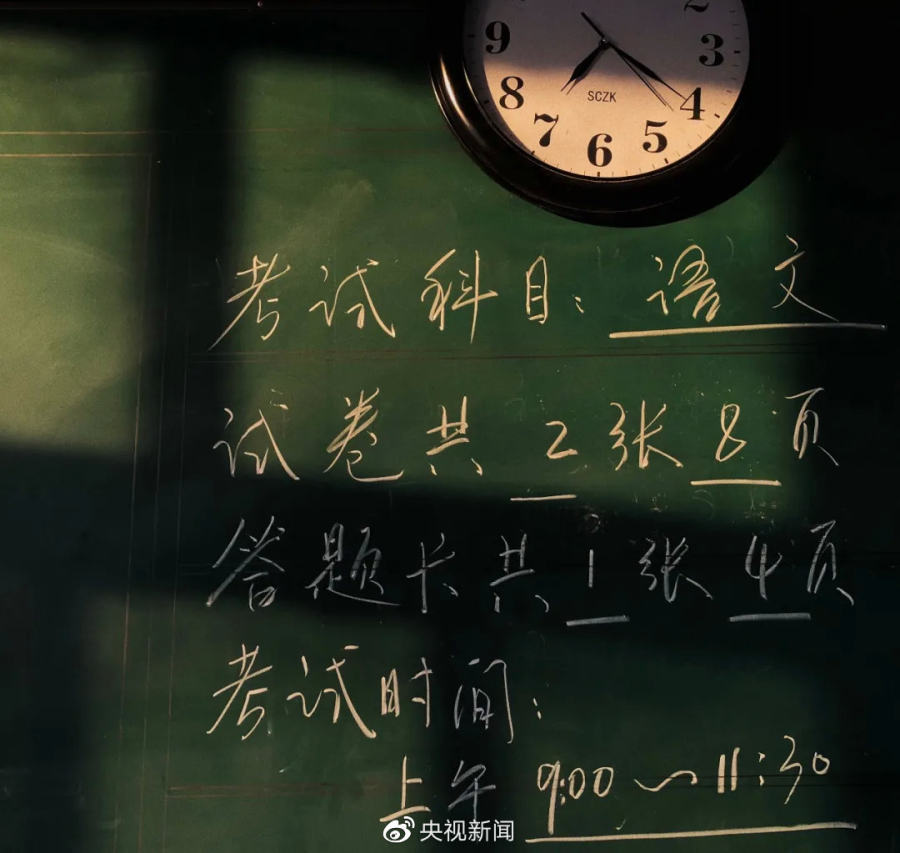 2
9 3
8 SCZK 4
7 6 5
考试科目：语文
试卷共2张8页
答题卡共1张4页
考试时间：
上午 9:00～11:30
央视新闻